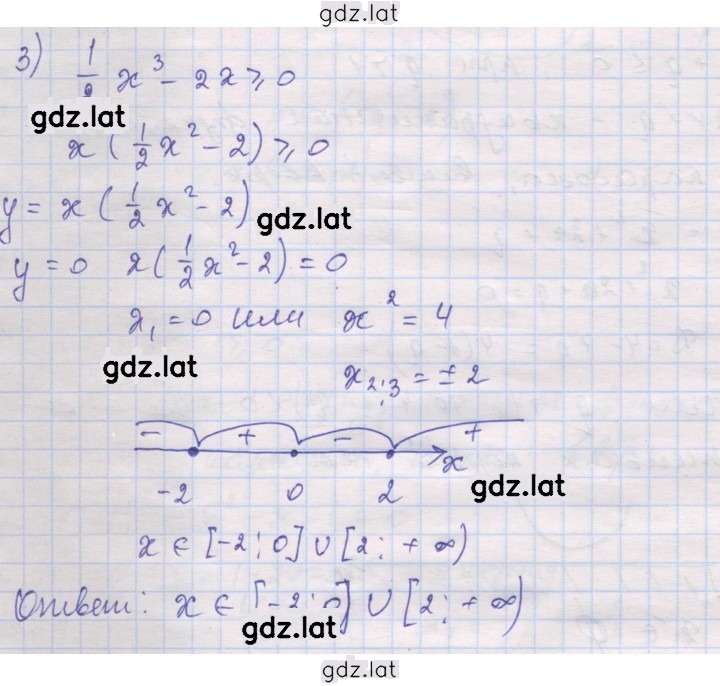 gdz.lat
3) 1/2 x³ - 2x ⩾ 0
gdz.lat
x (1/2 x² - 2) ⩾ 0
y = x (1/2 x² - 2)
gdz.lat
y = 0 x (1/2 x² - 2) = 0
x₁ = 0 или x² = 4
gdz.lat
x₂;₃ = ± 2
- + - +
x
-2 0 2
gdz.lat
x ∈ [-2; 0] ∪ [2; +∞)
Ответ: x ∈ [-2; 0] ∪ [2; +∞)
gdz.lat
gdz.lat